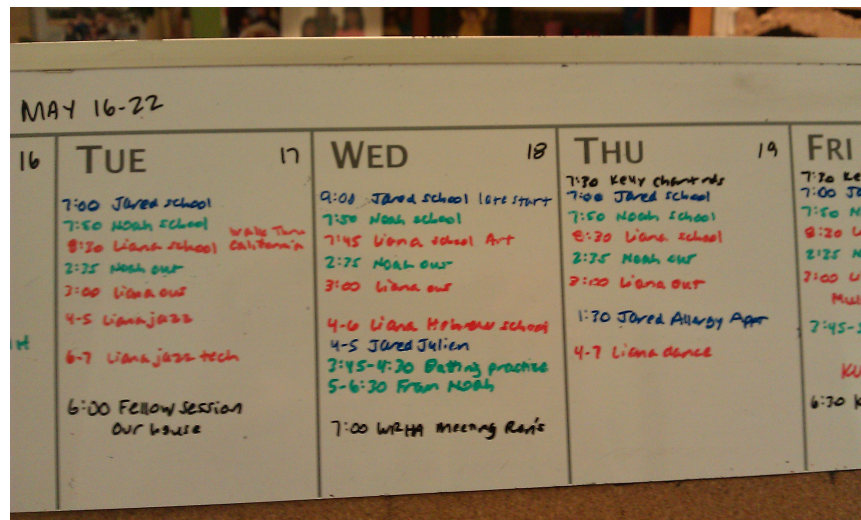 MAY 16-22
16
TUE 17
7:00 Jared school
7:50 Noah school
8:30 Liana school Walk Thru California
2:35 Noah out
3:00 Liana out
4-5 Liana jazz
6-7 Liana jazz tech
6:00 Fellow session
our house
WED 18
9:00 Jared school late start
7:50 Noah school
7:45 Liana school Art
2:35 Noah out
3:00 Liana out
4-6 Liana Hebrew school
4-5 Jared Julien
3:45-4:30 Batting practice
5-6:30 Noah
7:00 meeting Ron's
THU 19
7:30 Kelly chart rds
7:00 Jared school
7:50 Noah school
8:30 Liana school
2:35 Noah out
3:00 Liana out
1:30 Jared Allergy Appt
4-7 Liana dance
FRI
7:30 Ke
7:00 Ja
7:50 N
8:30 L
2:35 N
3:00 L
Mu
3:45-5
6:30 K